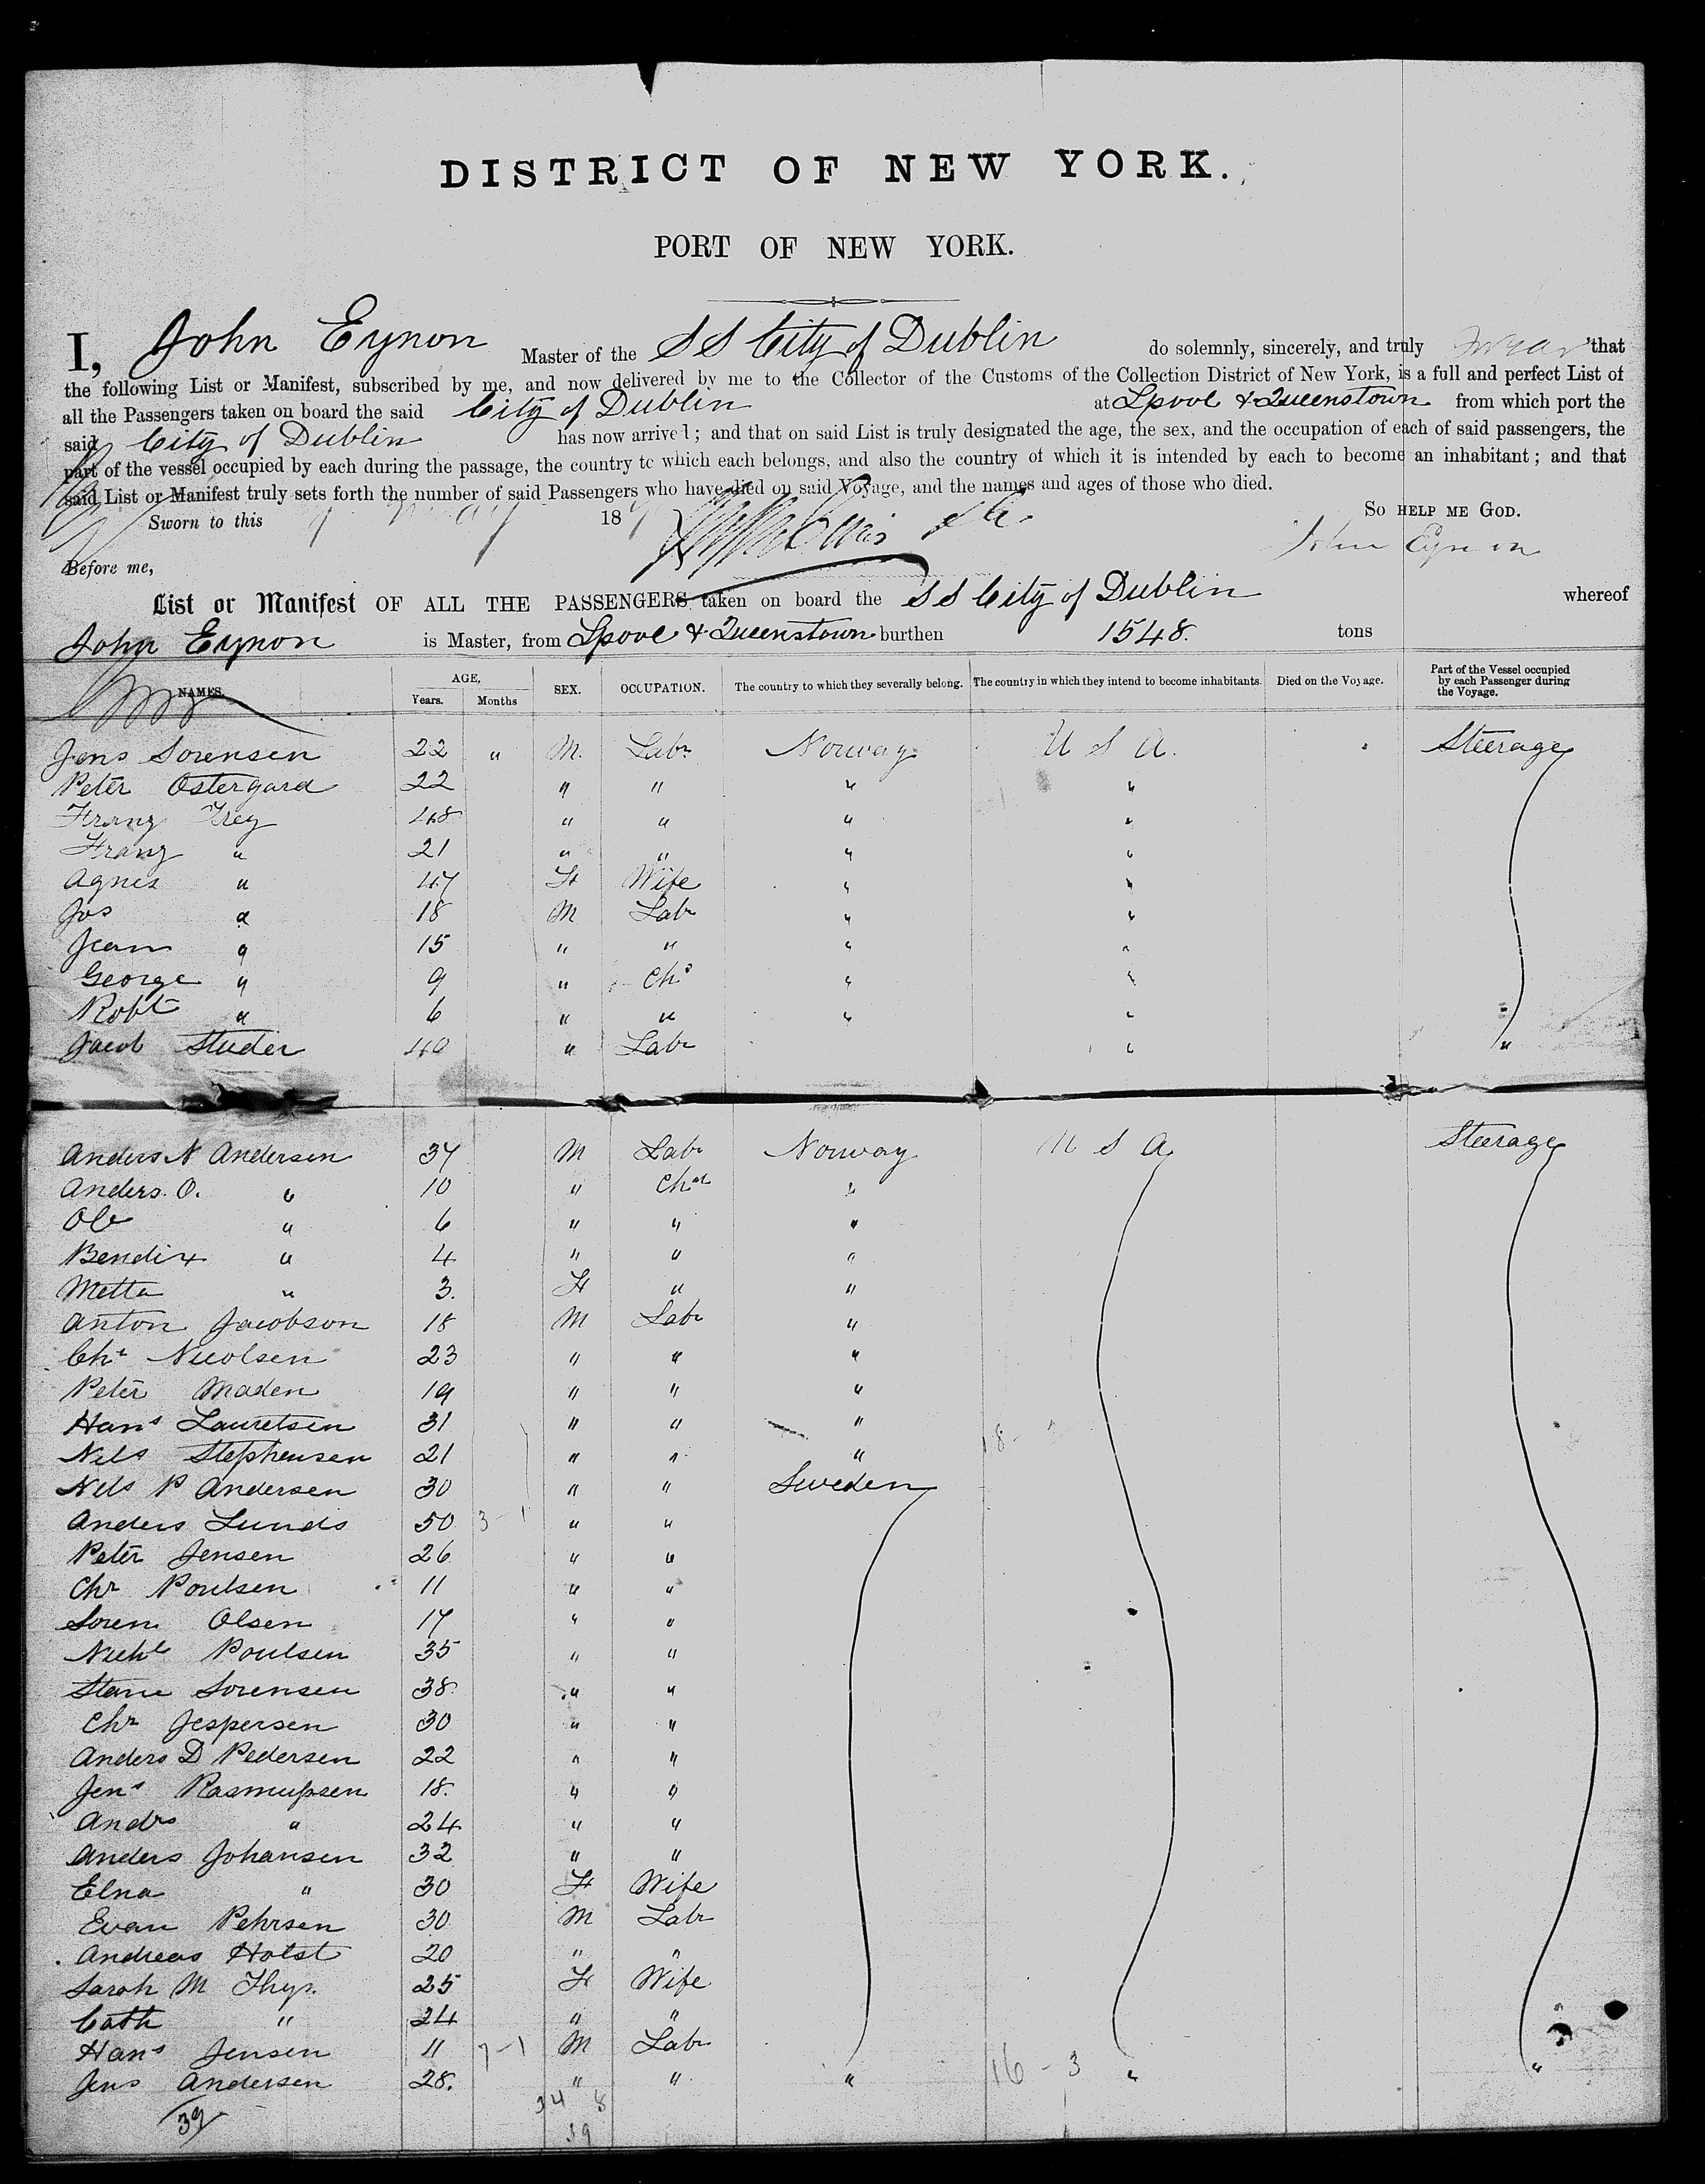 DISTRICT OF NEW YORK.
PORT OF NEW YORK.
I, John Eynon Master of the SS City of Dublin do solemnly, sincerely, and truly swear that
the following List or Manifest, subscribed by me, and now delivered by me to the Collector of the Customs of the Collection District of New York, is a full and perfect List of
all the Passengers taken on board the said City of Dublin at Lpool & Queenstown from which port the
said City of Dublin has now arrived; and that on said List is truly designated the age, the sex, and the occupation of each of said passengers, the
part of the vessel occupied by each during the passage, the country to which each belongs, and also the country of which it is intended by each to become an inhabitant; and that
said List or Manifest truly sets forth the number of said Passengers who have died on said Voyage, and the names and ages of those who died.
Sworn to this 18 So help me God.
John Eynon
Before me,
List or Manifest OF ALL THE PASSENGERS taken on board the SS City of Dublin whereof
John Eynon is Master, from Lpool & Queenstown burthen 1548. tons
NAMES. AGE, Years. Months SEX. OCCUPATION. The country to which they severally belong. The country in which they intend to become inhabitants. Died on the Voyage. Part of the Vessel occupied by each Passenger during the Voyage.
Jens Sorensen 22 " M. Labr Norway U S A. Steerage
Peter Ostergard 22 " " " "
Franz Frey 48 " " " "
Franz " 21 " " " "
Agnes " 47 F Wife " "
Jos " 18 M Labr " "
Jean " 15 " " " "
George " 9 " Chd " "
Robt " 6 " " " "
Jacob Studer 40 " Labr " "
Anders N Andersen 37 M Labr Norway U S A Steerage
Anders. O. " 10 " Chd "
Ole " 6 " " "
Bendix " 4 " " "
Metta " 3. F " "
Anton Jacobson 18 M Labr "
Chr Nicolsen 23 " " "
Peter Maden 19 " " "
Hans Lauretsen 31 " " "
Nels Stephensen 21 " " "
Nels P Andersen 30 " " Sweden
Anders Lunds 50 3-1 " "
Peter Jensen 26 " "
Chr Poulsen 11 " "
Soren Olsen 17 " "
Poulsen 35 " "
Sorensen 38. " "
Chr Jespersen 30 " "
Anders D Pedersen 22 " "
Jens Rasmussen 18. " "
Andrs " 24 " "
Anders Johansen 32 " "
Elna " 30 F Wife
Evan Pehrsen 30 M Labr
Andreas Holst 20 " "
Sarah M Thys. 25 F Wife
Cath " 24 " "
Hans Jensen 11 7-1 M Labr
Jens Andersen 28. " " " 16-3 " "
39 34 8
39